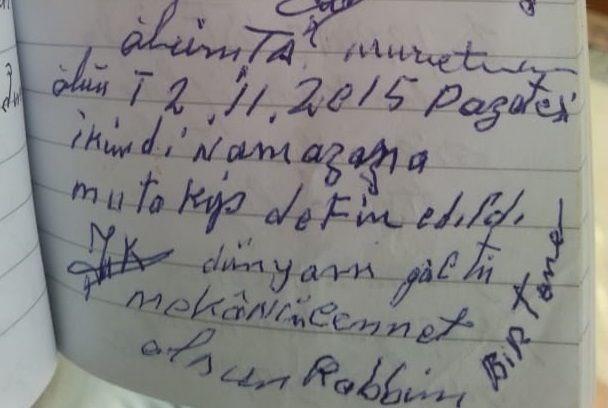 ölüm TA
ölüm T 2.11.2015 Pazatesi
ikindi Namazına
mutakip defin edildi
dünyam göçtü
mekânın cennet
olsun Rabbim
BİR Tane